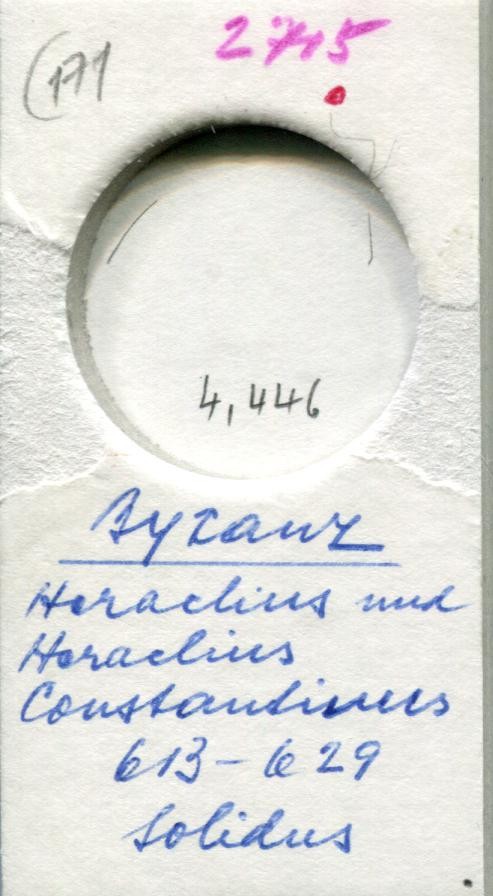 (171
2745
4,446
Byzanz
Heraclius und
Heraclius
Constantinus
613-629
Solidus